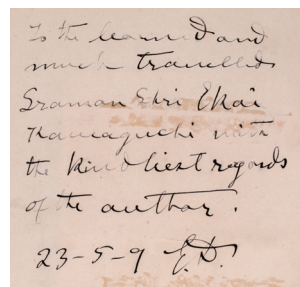 To the learned and
much travelled
Sraman Shri Ekai
Kawaguchi with
the kindliest regards
of the author.
23-5-9 E.D.